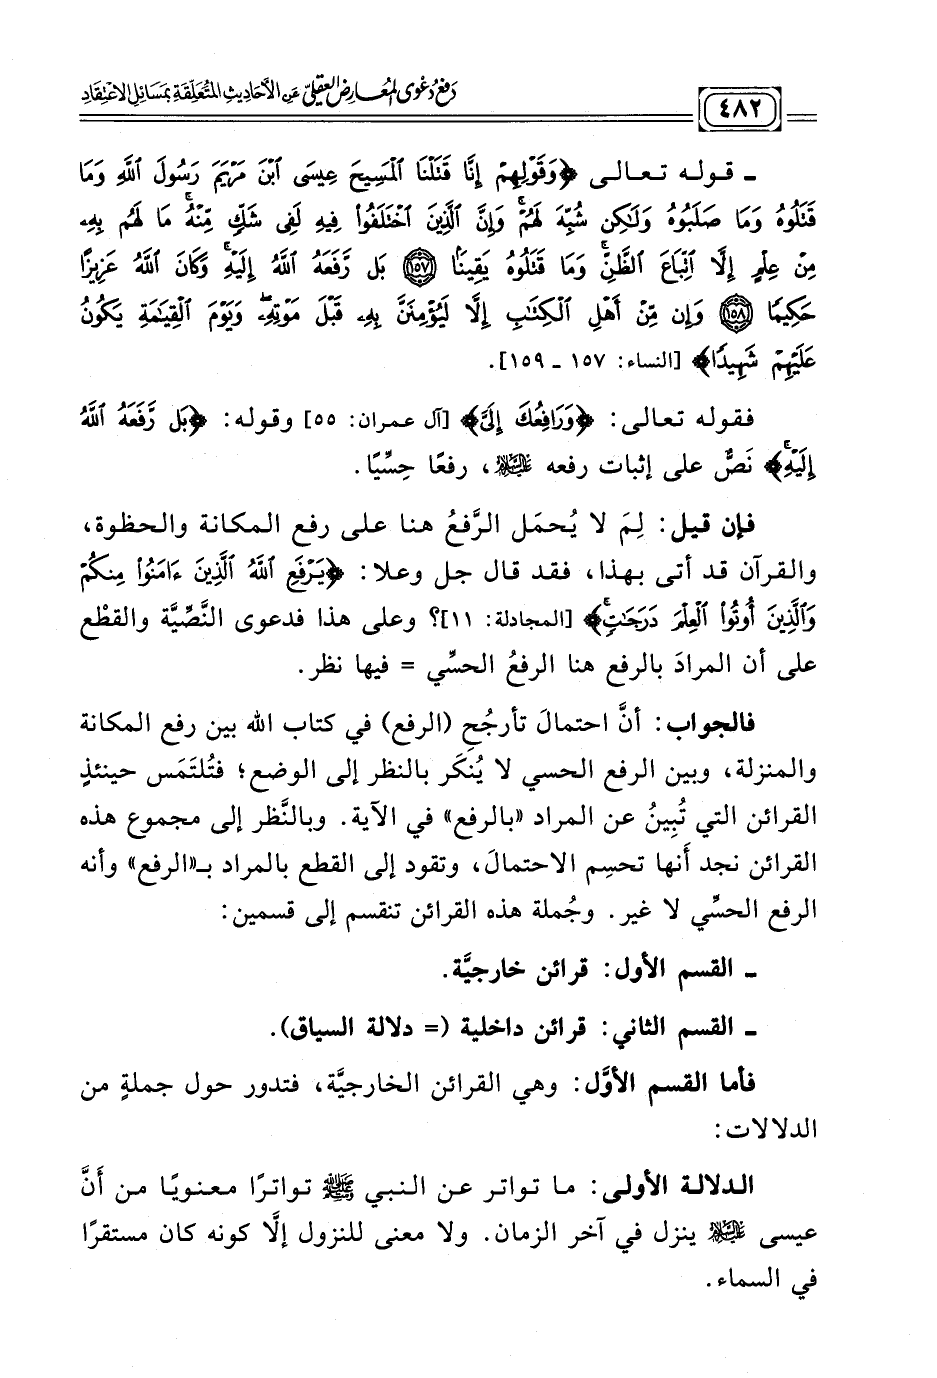 ٤٨٢
دفع دعوى المعارض العقلي عن الأحاديث المتعلقة بمسائل الاعتقاد
ـ قوله تعالى ﴿وَقَوْلِهِمْ إِنَّا قَتَلْنَا ٱلْمَسِيحَ عِيسَى ٱبْنَ مَرْيَمَ رَسُولَ ٱللَّهِ وَمَا
قَتَلُوهُ وَمَا صَلَبُوهُ وَلَٰكِن شُبِّهَ لَهُمْ ۚ وَإِنَّ ٱلَّذِينَ ٱخْتَلَفُوا۟ فِيهِ لَفِى شَكٍّ مِّنْهُ ۚ مَا لَهُم بِهِۦ
مِنْ عِلْمٍ إِلَّا ٱتِّبَاعَ ٱلظَّنِّ ۚ وَمَا قَتَلُوهُ يَقِينًۢا ﴿١٥٧﴾ بَل رَّفَعَهُ ٱللَّهُ إِلَيْهِ ۚ وَكَانَ ٱللَّهُ عَزِيزًا
حَكِيمًا ﴿١٥٨﴾ وَإِن مِّنْ أَهْلِ ٱلْكِتَٰبِ إِلَّا لَيُؤْمِنَنَّ بِهِۦ قَبْلَ مَوْتِهِۦ ۖ وَيَوْمَ ٱلْقِيَٰمَةِ يَكُونُ
عَلَيْهِمْ شَهِيدًا﴾ [النساء: ١٥٧ ـ ١٥٩].
فقوله تعالى: ﴿وَرَافِعُكَ إِلَىَّ﴾ [آل عمران: ٥٥] وقوله: ﴿بَل رَّفَعَهُ ٱللَّهُ
إِلَيْهِ ۚ﴾ نَصٌّ على إثبات رفعه عليه السلام، رفعًا حِسِّيًا.
فإن قيل: لِمَ لا يُحمَل الرَّفعُ هنا على رفع المكانة والحظوة،
والقرآن قد أتى بهذا، فقد قال جل وعلا: ﴿يَرْفَعِ ٱللَّهُ ٱلَّذِينَ ءَامَنُوا۟ مِنكُمْ
وَٱلَّذِينَ أُوتُوا۟ ٱلْعِلْمَ دَرَجَٰتٍ ۚ﴾ [المجادلة: ١١]؟ وعلى هذا فدعوى النَّصِّيَّة والقطْع
على أن المرادَ بالرفع هنا الرفعُ الحسِّي = فيها نظر.
فالجواب: أنَّ احتمالَ تأرجُحِ (الرفع) في كتاب الله بين رفع المكانة
والمنزلة، وبين الرفع الحسي لا يُنكَر بالنظر إلى الوضع؛ فتُلتَمَس حينئذٍ
القرائن التي تُبِينُ عن المراد «بالرفع» في الآية. وبالنَّظر إلى مجموع هذه
القرائن نجد أَنها تحسِم الاحتمالَ، وتقود إلى القطع بالمراد بـ«الرفع» وأنه
الرفع الحسِّي لا غير. وجُملة هذه القرائن تنقسم إلى قسمين:
ـ القسم الأول: قرائن خارجيَّة.
ـ القسم الثاني: قرائن داخلية (= دلالة السياق).
فأما القسم الأوَّل: وهي القرائن الخارجيَّة، فتدور حول جملةٍ من
الدلالات:
الدلالة الأولى: ما تواتر عن النبي ﷺ تواترًا معنويًا من أَنَّ
عيسى عليه السلام ينزل في آخر الزمان. ولا معنى للنزول إلَّا كونه كان مستقرًا
في السماء.